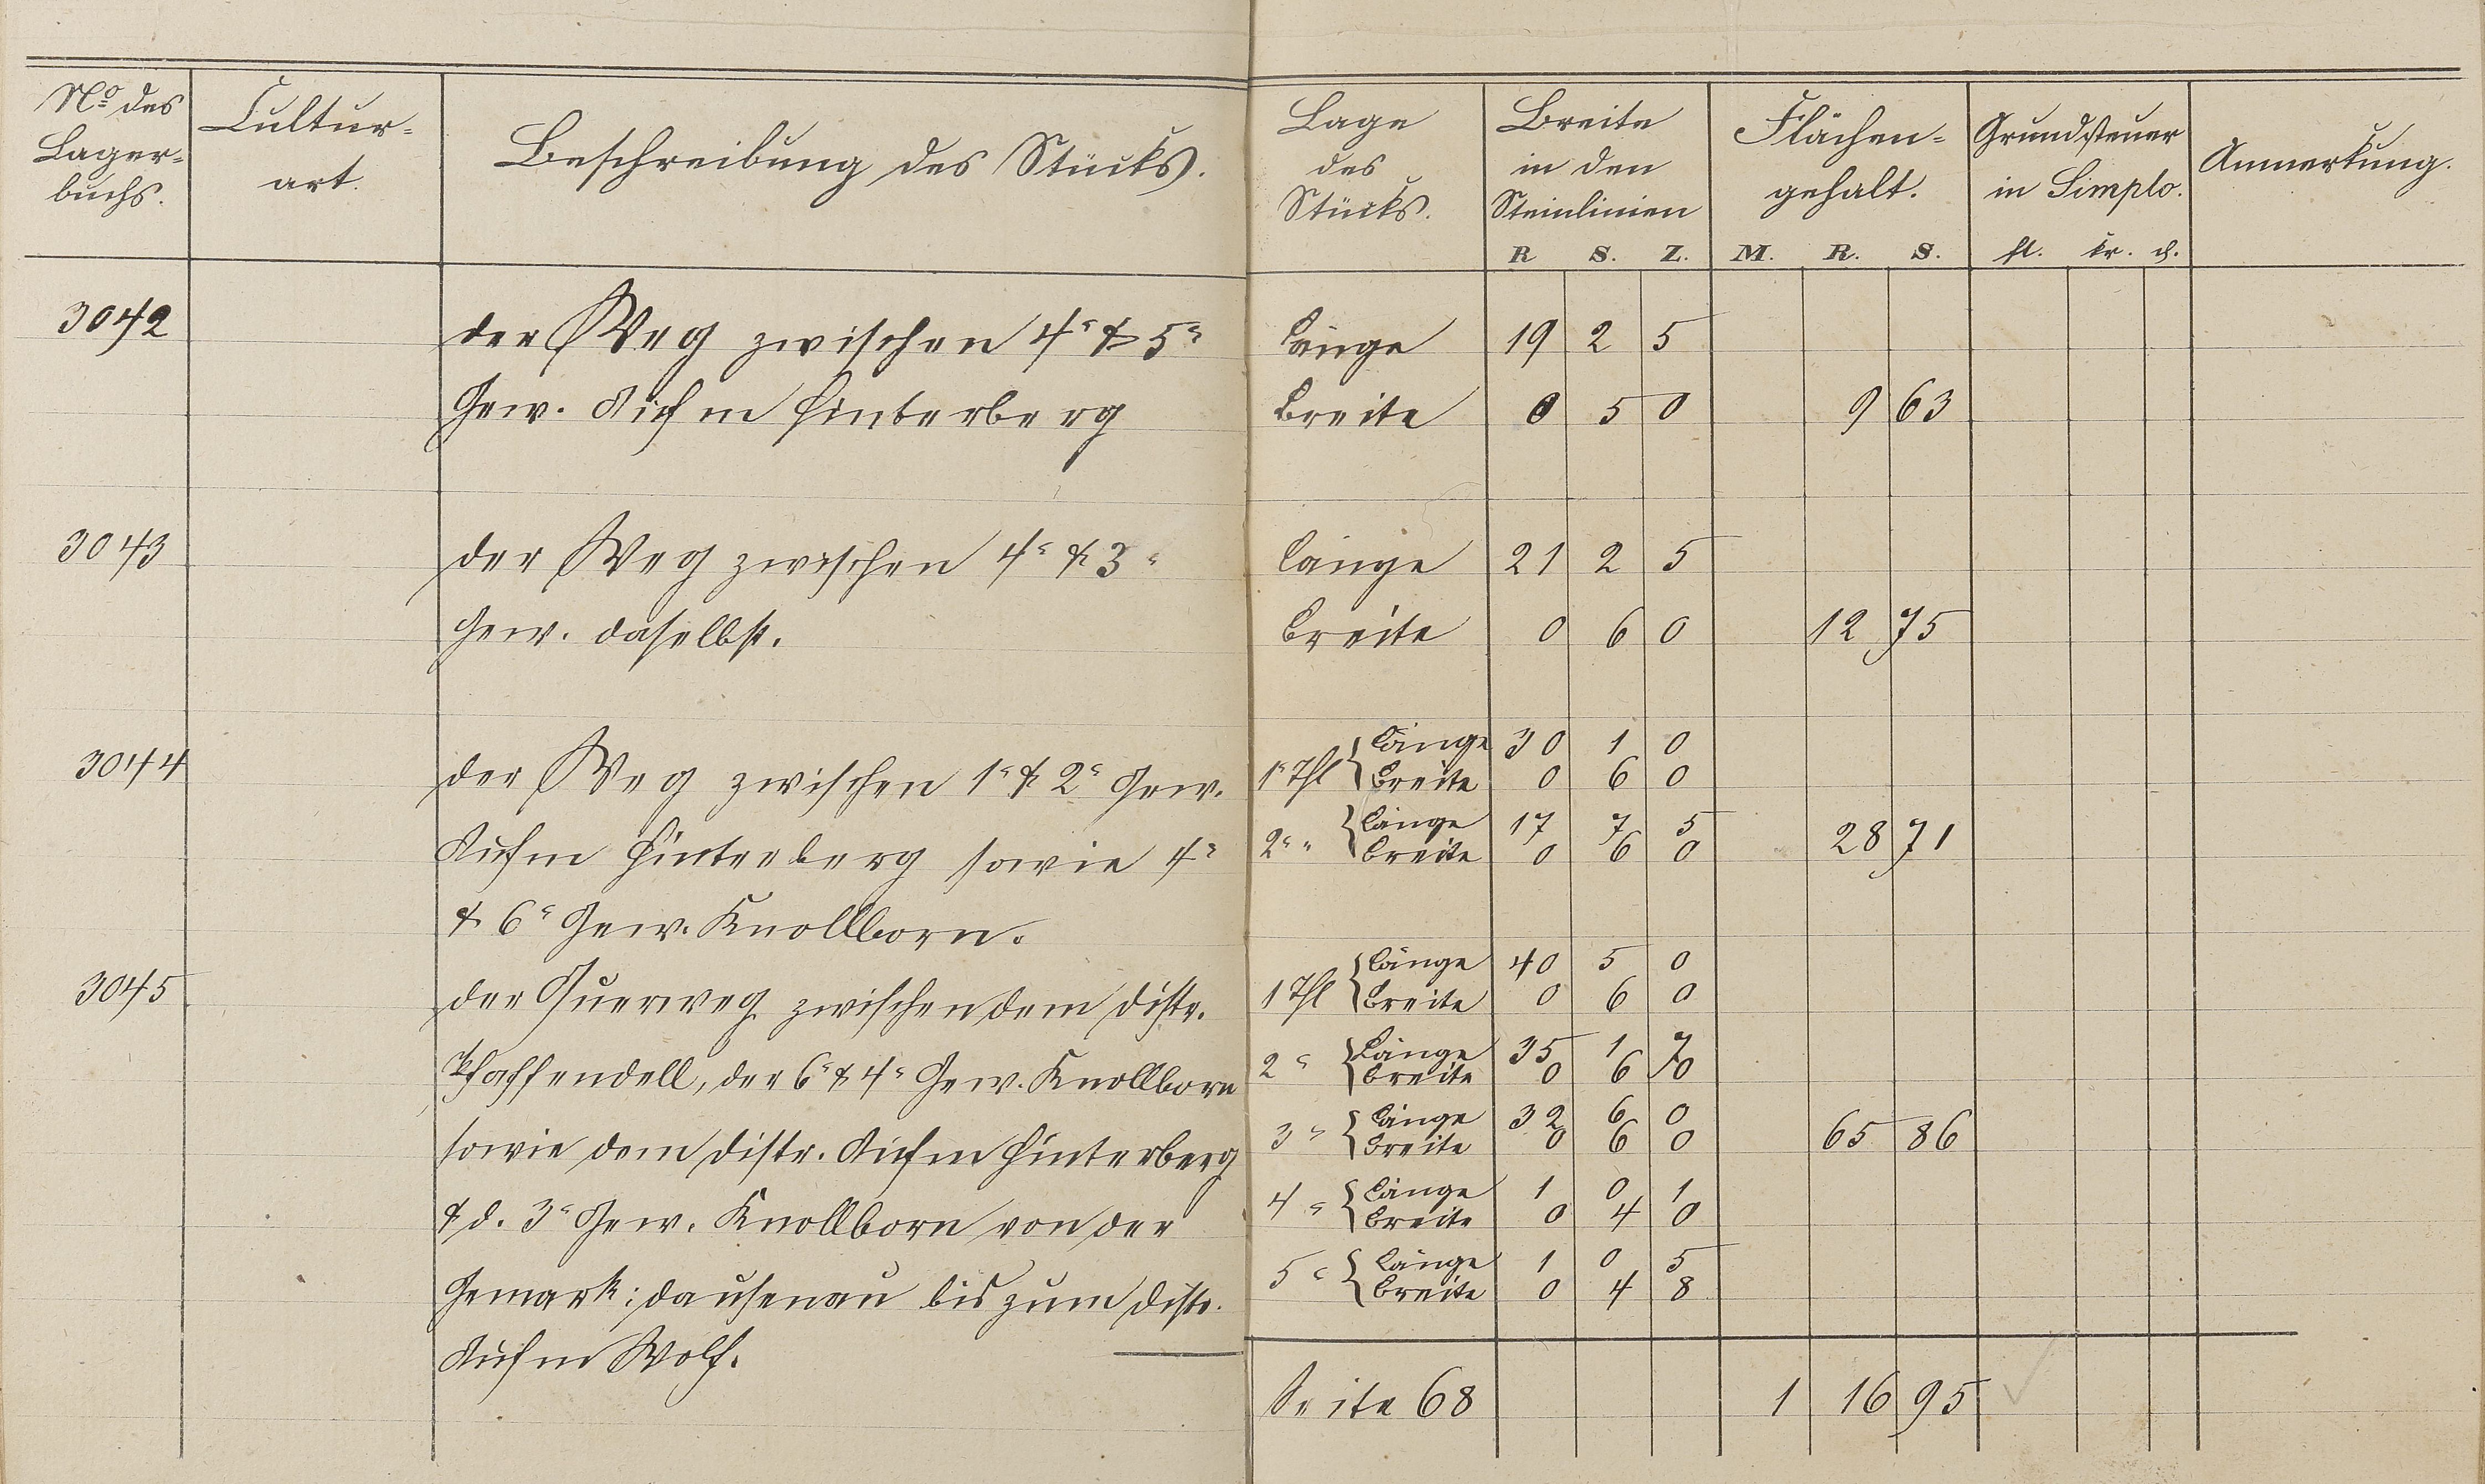 No des Lager= buchs.
Cultur= art.
Beschreibung des Stücks.
Lage des Stücks.
Breite in den Steinlinien
Flächen= gehalt.
Grundsteuer in Simplo.
Anmerkung.
R S. Z. M. R. S. fl. kr. d.
3042 der Weg zwischen 4r & 5r Länge 19 2 5
Gew. Aufm Hinterberg Breite 0 5 0 9 63
3043 der Weg zwischen 4r & 3r Länge 21 2 5
Gew. daselbst. Breite 0 6 0 12 75
3044 der Weg zwischen 1r & 2r Gew. 1r Thl Länge 30 1 0
Breite 0 6 0
Aufm Hinterberg sowie 4r 2r " Länge 17 7 5
Breite 0 6 0 28 71
& 6r Gew. Knollborn.
3045 der Querweg zwischen dem Distr. 1 Thl Länge 40 5 0
Breite 0 6 0
Pfaffendell, der 6r & 4r Gew. Knollborn 2r Länge 35 1 7
Breite 0 6 0
sowie dem Distr. Aufm Hinterberg 3r Länge 32 6 0
Breite 0 6 0 65 86
& d. 3r Gew. Knollborn von der 4r Länge 1 0 1
Breite 0 4 0
Gemark: Dausenau bis zum Distr. 5r Länge 1 0 5
Breite 0 4 8
Aufm Wolf.
Seite 68 1 16 95